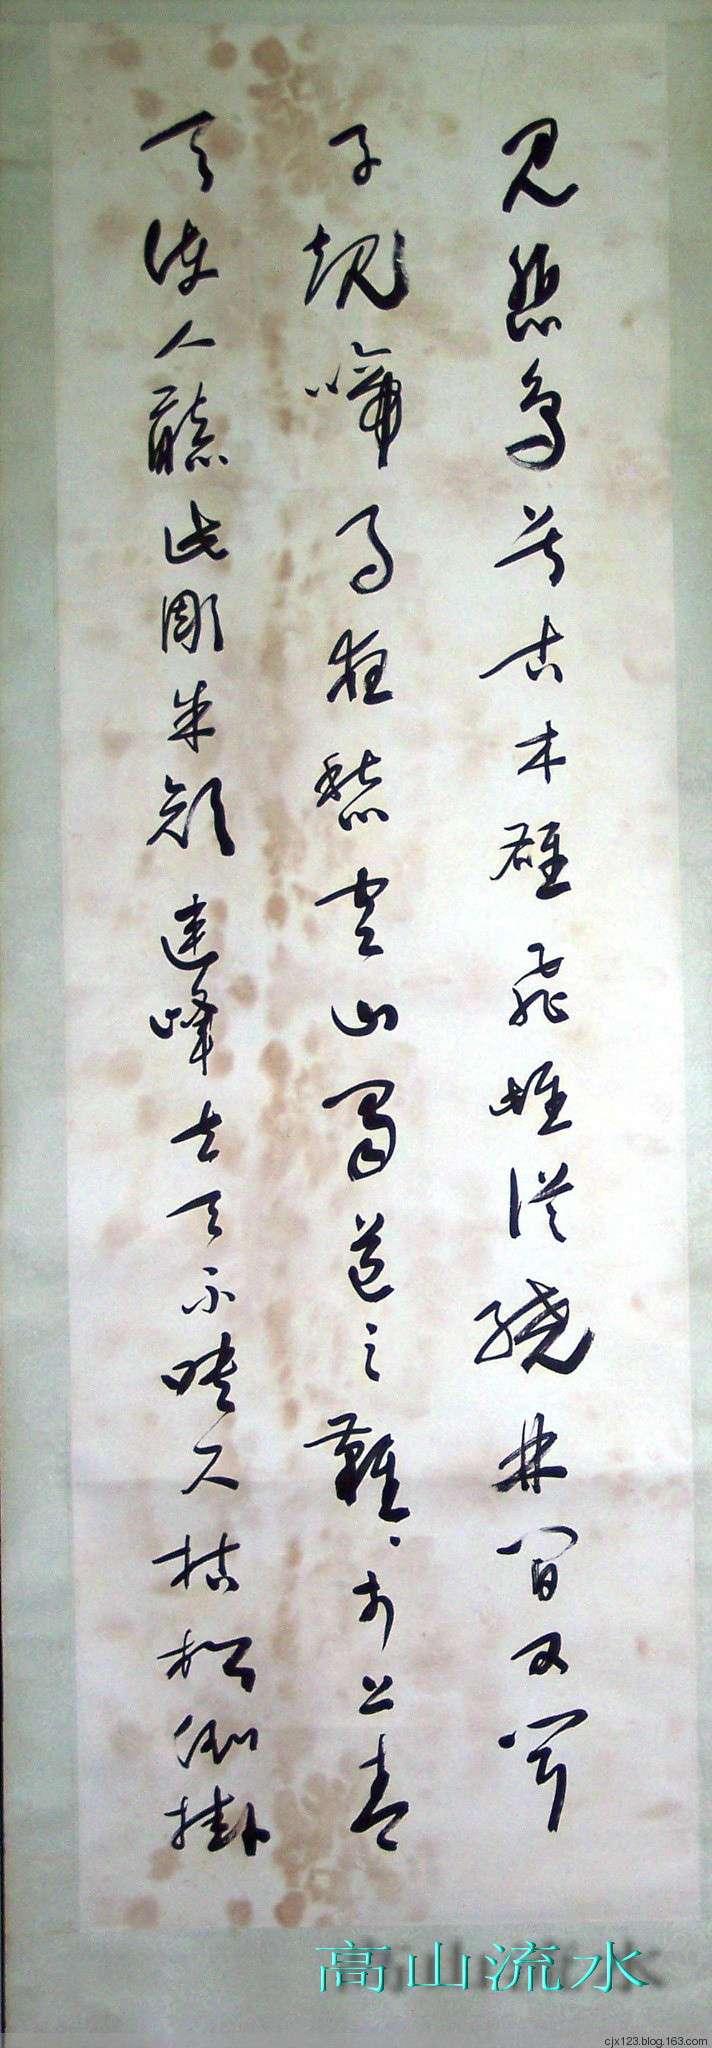 見悲鳥号古木雄飛雌從繞林間又聞
子規啼月夜愁空山蜀道之難々於上青
天使人聽此彫朱顏連峰去天不盈尺枯松倒掛
高山流水
cjx123.blog.163.com